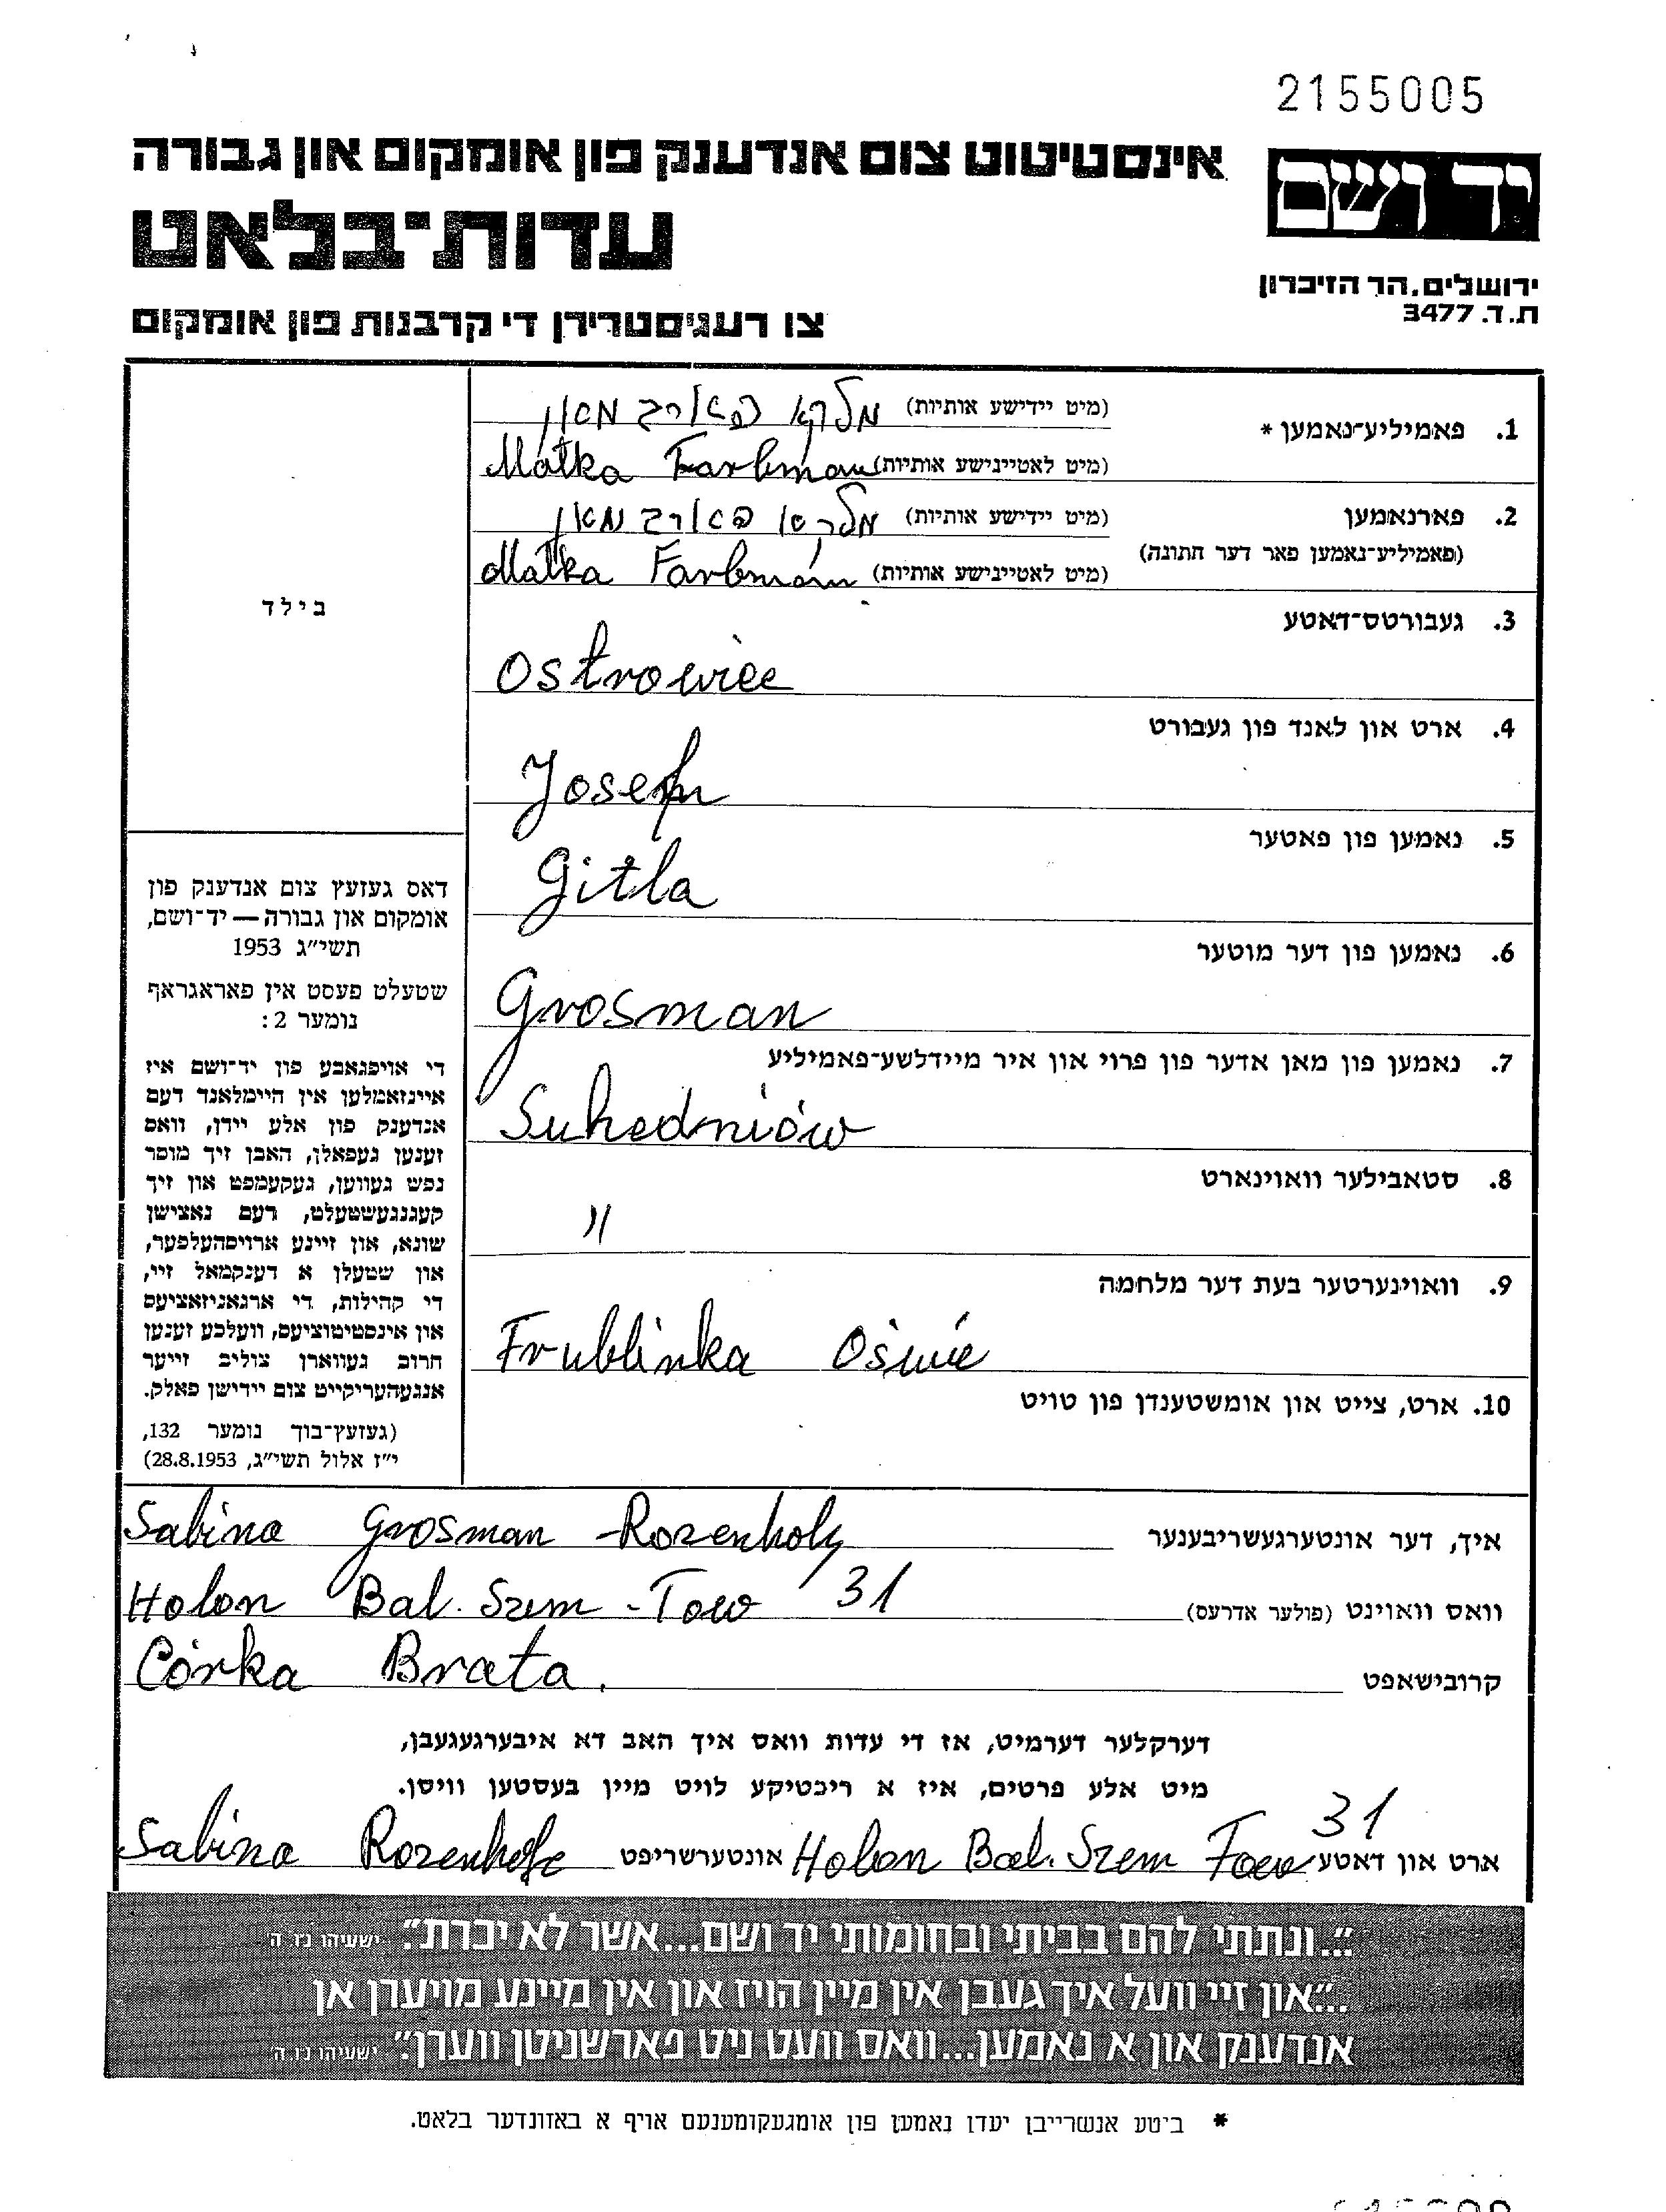 2155005
אינסטיטוט צום אנדענק פון אומקום און גבורה
יד ושם
עדות־בלאט
ירושלים, הר הזיכרון
ת.ד. 3477
צו רעגיסטרירן די קרבנות פון אומקום
1. פאמיליע־נאמען *
(מיט יידישע אותיות) מלקא פארבמאן
(מיט לאטיינישע אותיות) Małka Farbman
2. פארנאמען
(פאמיליע־נאמען פאר דער חתונה)
(מיט יידישע אותיות) מלקא פארבמאן
(מיט לאטיינישע אותיות) Małka Farbman
בילד
3. געבורטס־דאטע
Ostrowiec
4. ארט און לאנד פון געבורט
Josef
5. נאמען פון פאטער
Gitla
6. נאמען פון דער מוטער
Grosman
7. נאמען פון מאן אדער פון פרוי און איר מיידלשע־פאמיליע
Suhedniów
8. סטאבילער וואוינארט
"
9. וואוינערטער בעת דער מלחמה
Frublinka
10. ארט, צייט און אומשטענדן פון טויט
דאס געזעץ צום אנדענק פון
אומקום און גבורה — יד־ושם,
תשי״ג 1953
שטעלט פעסט אין פאראגראף
נומער 2:
די אויפגאבע פון יד־ושם איז
איינזאמלען אין היימלאנד דעם
אנדענק פון אלע יידן, וואס
זענען געפאלן, האבן זיך מוסר
נפש געווען, געקעמפט און זיך
קעגנגעשטעלט, דעם נאצישן
שונא, און זיינע ארויסהעלפער,
און שטעלן א דענקמאל זיי,
די קהילות, די ארגאניזאציעס
און אינסטיטוציעס, וועלכע זענען
חרוב געווארן צוליב זייער
אנגעהעריקייט צום יידישן פאלק.
(געזעץ־בוך נומער 132,
י״ז אלול תשי״ג, 28.8.1953)
איך, דער אונטערגעשריבענער Sabina Grosman-Rozenholz
וואס וואוינט (פולער אדרעס) Holon Bal. Szem-Tow 31
קרובישאפט Córka Brata.
דערקלער דערמיט, אז די עדות וואס איך האב דא איבערגעגעבן,
מיט אלע פרטים, איז א ריכטיקע לויט מיין בעסטען וויסן.
ארט און דאטע Holon Bal. Szem Tow 31 אונטערשריפט Sabina Rozenholc
״...ונתתי להם בביתי ובחומותי יד ושם...אשר לא יכרת״. ישעיהו נו. ה
...״און זיי וועל איך געבן אין מיין הויז און אין מיינע מויערן אן
אנדענק און א נאמען...וואס וועט ניט פארשניטן ווערן״. ישעיהו נו. ה
* ביטע אנשרייבן יעדן נאמען פון אומגעקומענעם אויף א באזונדער בלאט.